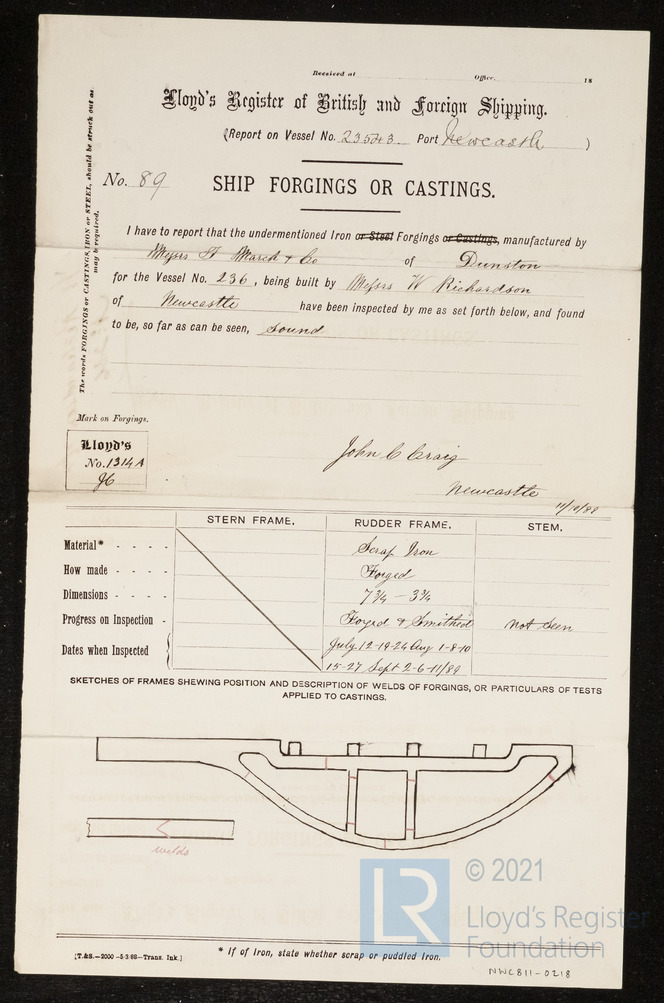 Received at Office. 18
Lloyd's Register of British and Foreign Shipping.
(Report on Vessel No. 23543 Port Newcastle )
No. 89 SHIP FORGINGS OR CASTINGS.
The words FORGINGS or CASTINGS, IRON or STEEL, should be struck out as
may be required.
I have to report that the undermentioned Iron or Steel Forgings or Castings, manufactured by
Messrs T March & Co of Dunston
for the Vessel No. 236, being built by Messrs W Richardson
of Newcastle have been inspected by me as set forth below, and found
to be, so far as can be seen, Sound
Mark on Forgings.
Lloyd's
No. 1314A
John C Craig
Newcastle
STERN FRAME. RUDDER FRAME. STEM.
Material* - - - - Scrap Iron
How made - - - - Forged
Dimensions - - - - 7¾ - 3¾
Progress on Inspection - Forged & Smithed not seen
Dates when Inspected July 12-19-26 Aug 1-8-10
15-27 Sept 2-6-11/89
SKETCHES OF FRAMES SHEWING POSITION AND DESCRIPTION OF WELDS OF FORGINGS, OR PARTICULARS OF TESTS
APPLIED TO CASTINGS.
welds
© 2021
LR
Lloyd's Register
Foundation
* If of Iron, state whether scrap or puddled Iron.
[T.&S.—2000—5.3.88—Trans. Ink.]
NWC811-0218